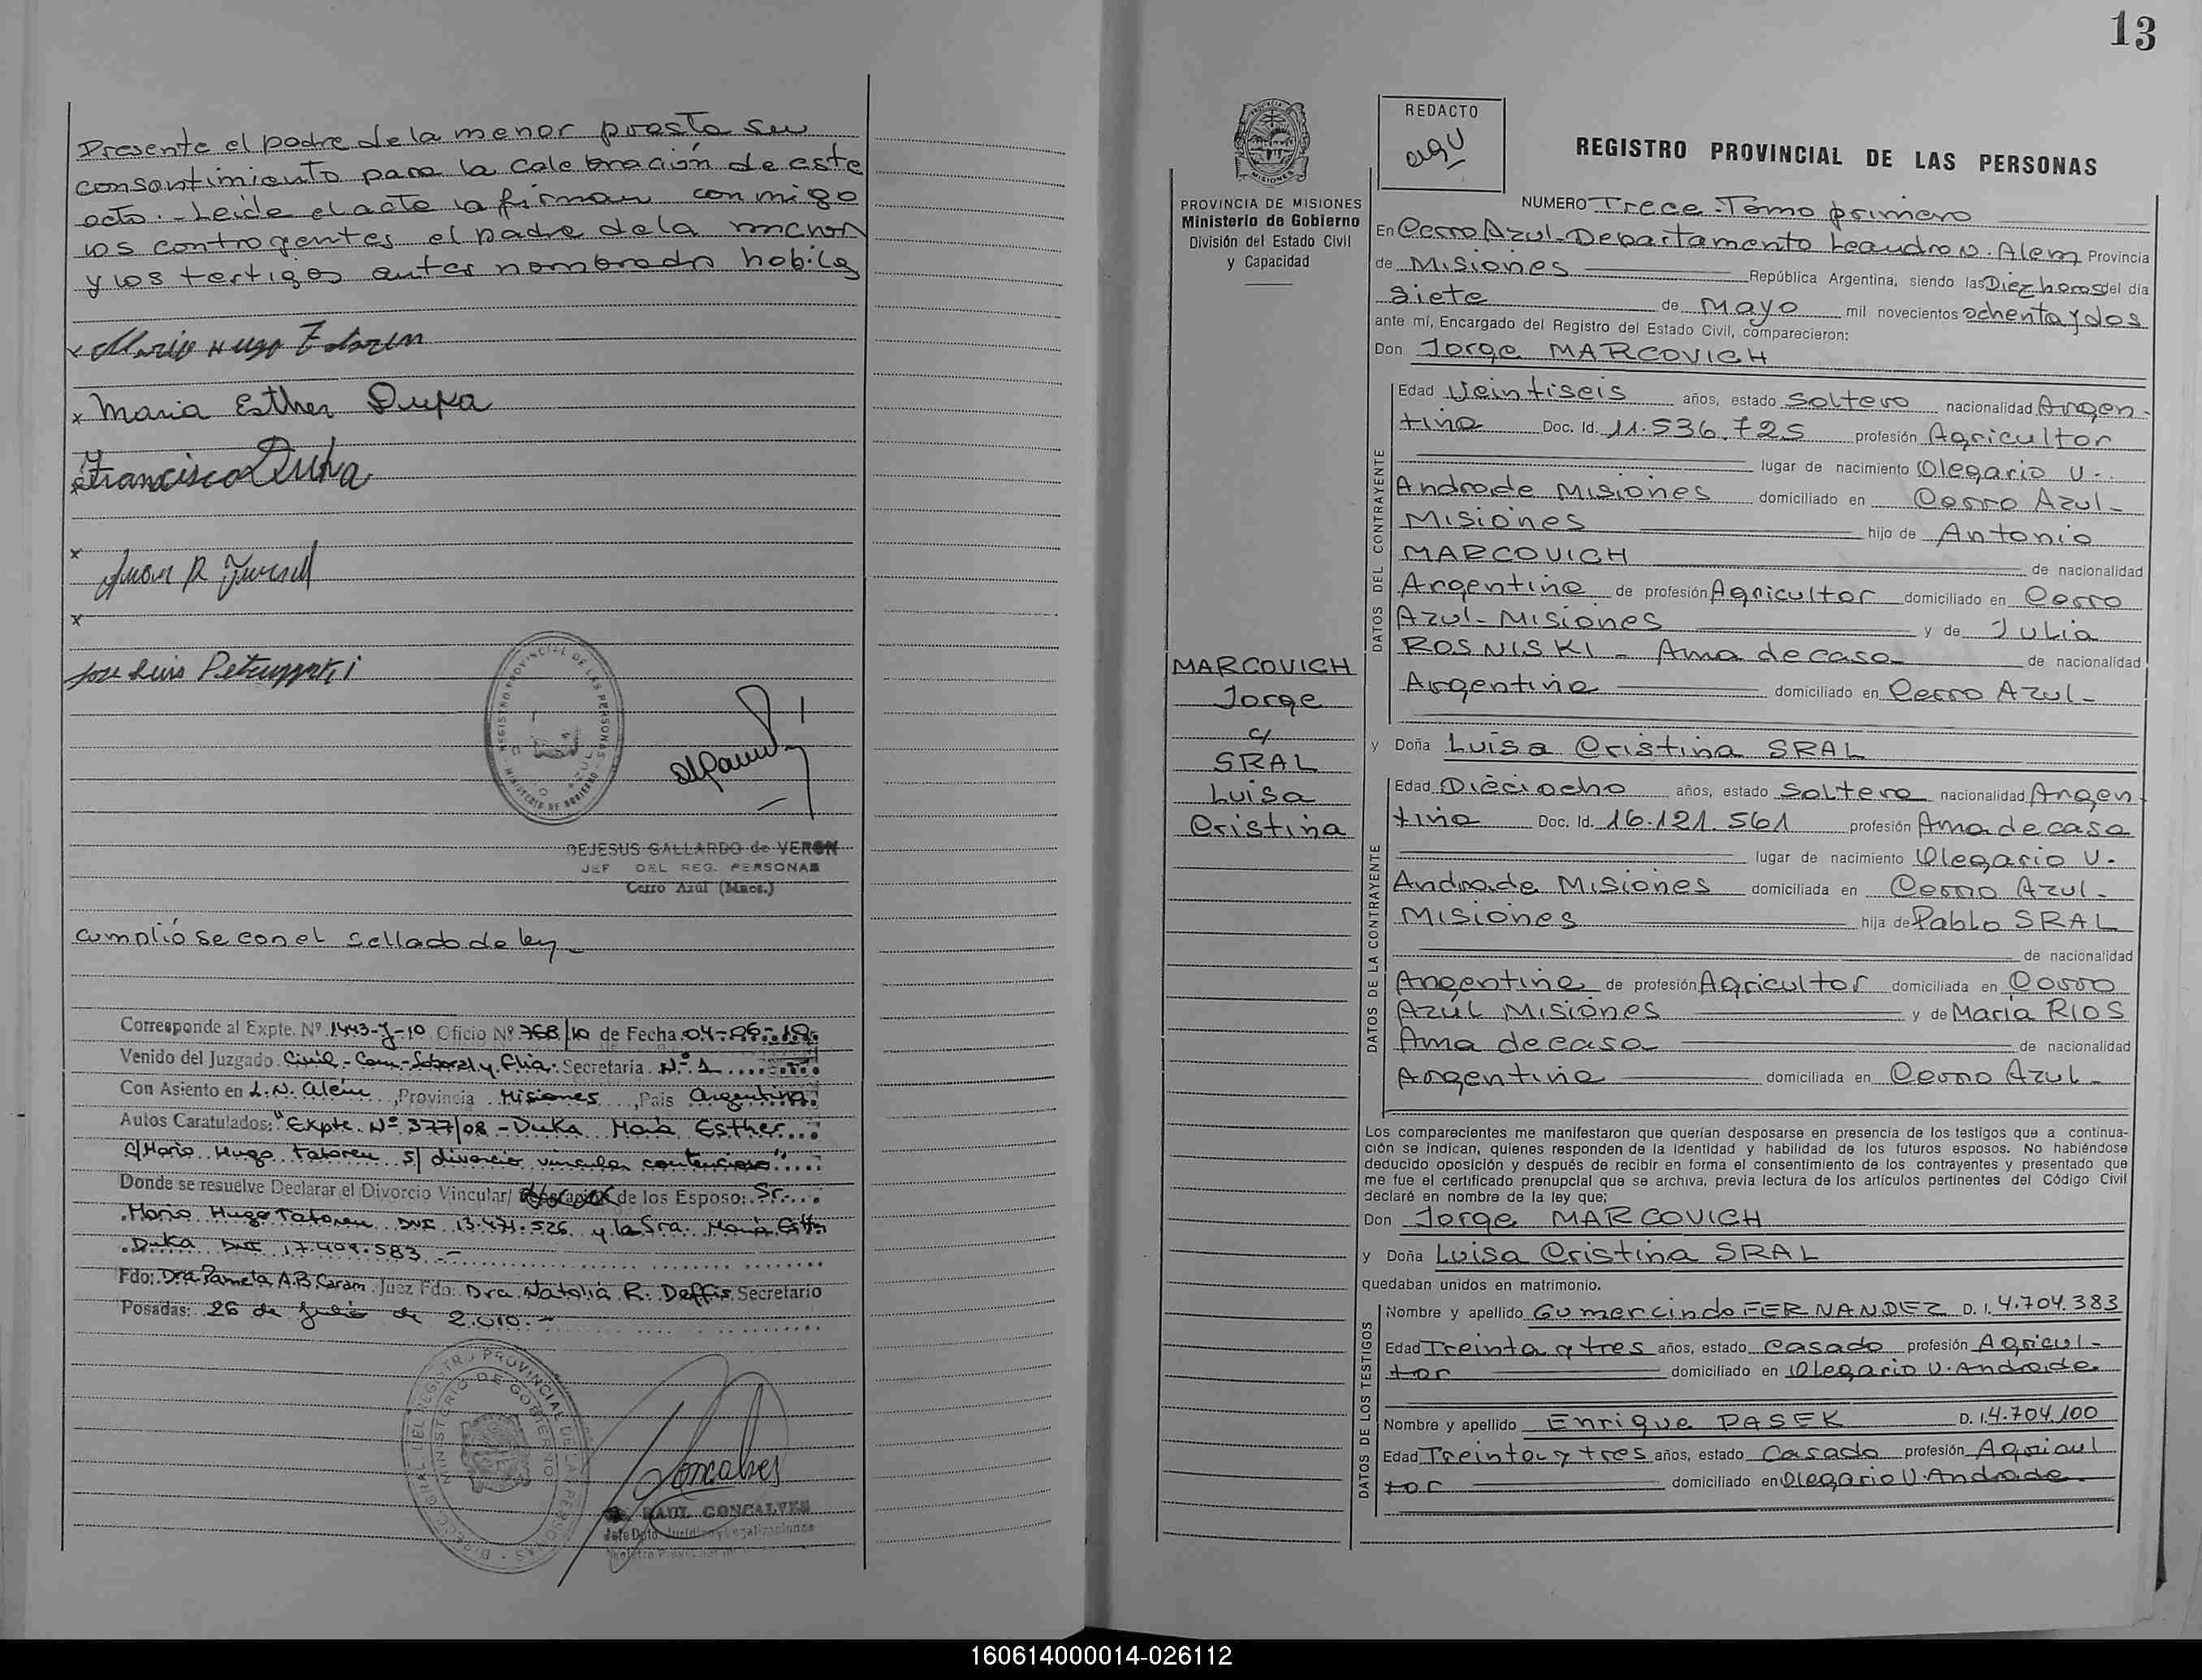 Presente el padre de la menor presta su
consentimiento para la celebración de este
acto.- Leida el acta la firman conmigo
los contrayentes el padre de la menor
y los testigos antes nombrado hobiles
Mario Hugo
x Maria Esther Duka
x Francisco Duka
x
Juan R.
x
Jose Luis
REGISTRO PROVINCIAL DE LAS PERSONAS
MINISTERIO DE GOBIERNO
DEJESUS GALLARDO de VERON
JEF DEL REG. PERSONAS
Cerro Azul (Mnes.)
cumplióse con el sellado de ley-
Corresponde al Expte. Nº 1443-J-10 Oficio Nº 768/10 de Fecha 04-06-10.
Venido del Juzgado Civil-Com-Laboral y Flia. Secretaría Nº 1
Con Asiento en L.N. Alem, Provincia Misiones, País Argentina
Autos Caratulados: "Expte. Nº 377/08 - Duka María Esther
c/Mario Hugo Tatoren s/ divorcio vincular contencioso"
Donde se resuelve Declarar el Divorcio Vincular/ de los Esposo: Sr.
Mario Hugo Tatoren DNI 13.471.526 y la Sra. María Esther
Duka DNI 17.409.583.-
Fdo: Dra Pamela A.B. Caram Juez Fdo: Dra. Natalia R. Deffis Secretario
Posadas: 26 de Julio de 2.010.-
Goncalves
RAUL GONCALVES
Jefe Dpto. Jurídico y Legalizaciones
13
PROVINCIA DE MISIONES
Ministerio de Gobierno
División del Estado Civil
y Capacidad
MARCOVICH
Jorge
c/
SRAL
Luisa
Cristina
REDACTO
REGISTRO PROVINCIAL DE LAS PERSONAS
NUMERO Trece-Tomo primero
En Cerro Azul-Departamento Leandro N. Alem Provincia
de Misiones República Argentina, siendo las Diez horas del día
Siete de Mayo mil novecientos ochenta y dos
ante mí, Encargado del Registro del Estado Civil, comparecieron:
Don Jorge MARCOVICH
DATOS DEL CONTRAYENTE
Edad Veintiseis años, estado Soltero nacionalidad Argen-
tina Doc. Id. 11.536.725 profesión Agricultor
lugar de nacimiento Olegario V.
Andrade Misiones domiciliado en Cerro Azul-
Misiones hijo de Antonio
MARCOVICH de nacionalidad
Argentina de profesión Agricultor domiciliado en Cerro
Azul-Misiones y de Julia
ROSNISKI - Ama de casa de nacionalidad
Argentina domiciliado en Cerro Azul-
y Doña Luisa Cristina SRAL
DATOS DE LA CONTRAYENTE
Edad Dieciocho años, estado Soltera nacionalidad Argen-
tina Doc. Id. 16.121.561 profesión Ama de casa
lugar de nacimiento Olegario V.
Andrade Misiones domiciliada en Cerro Azul-
Misiones hija de Pablo SRAL
de nacionalidad
Argentina de profesión Agricultor domiciliada en Cerro
Azúl Misiones y de María RIOS
Ama de casa de nacionalidad
Argentina domiciliada en Cerro Azul-
Los comparecientes me manifestaron que querían desposarse en presencia de los testigos que a continua-
ción se indican, quienes responden de la identidad y habilidad de los futuros esposos. No habiéndose
deducido oposición y después de recibir en forma el consentimiento de los contrayentes y presentado que
me fue el certificado prenupcial que se archiva, previa lectura de los artículos pertinentes del Código Civil
declaré en nombre de la ley que;
Don Jorge MARCOVICH
y Doña Luisa Cristina SRAL
quedaban unidos en matrimonio.
DATOS DE LOS TESTIGOS
Nombre y apellido Gumercindo FERNANDEZ D. I. 4.704.383
Edad Treinta y tres años, estado casado profesión Agricul-
tor domiciliado en Olegario V. Andrade.
Nombre y apellido Enrique PASEK D. I. 4.704.100
Edad Treinta y tres años, estado Casado profesión Agricul
tor domiciliado en Olegario V. Andrade.
160614000014-026112